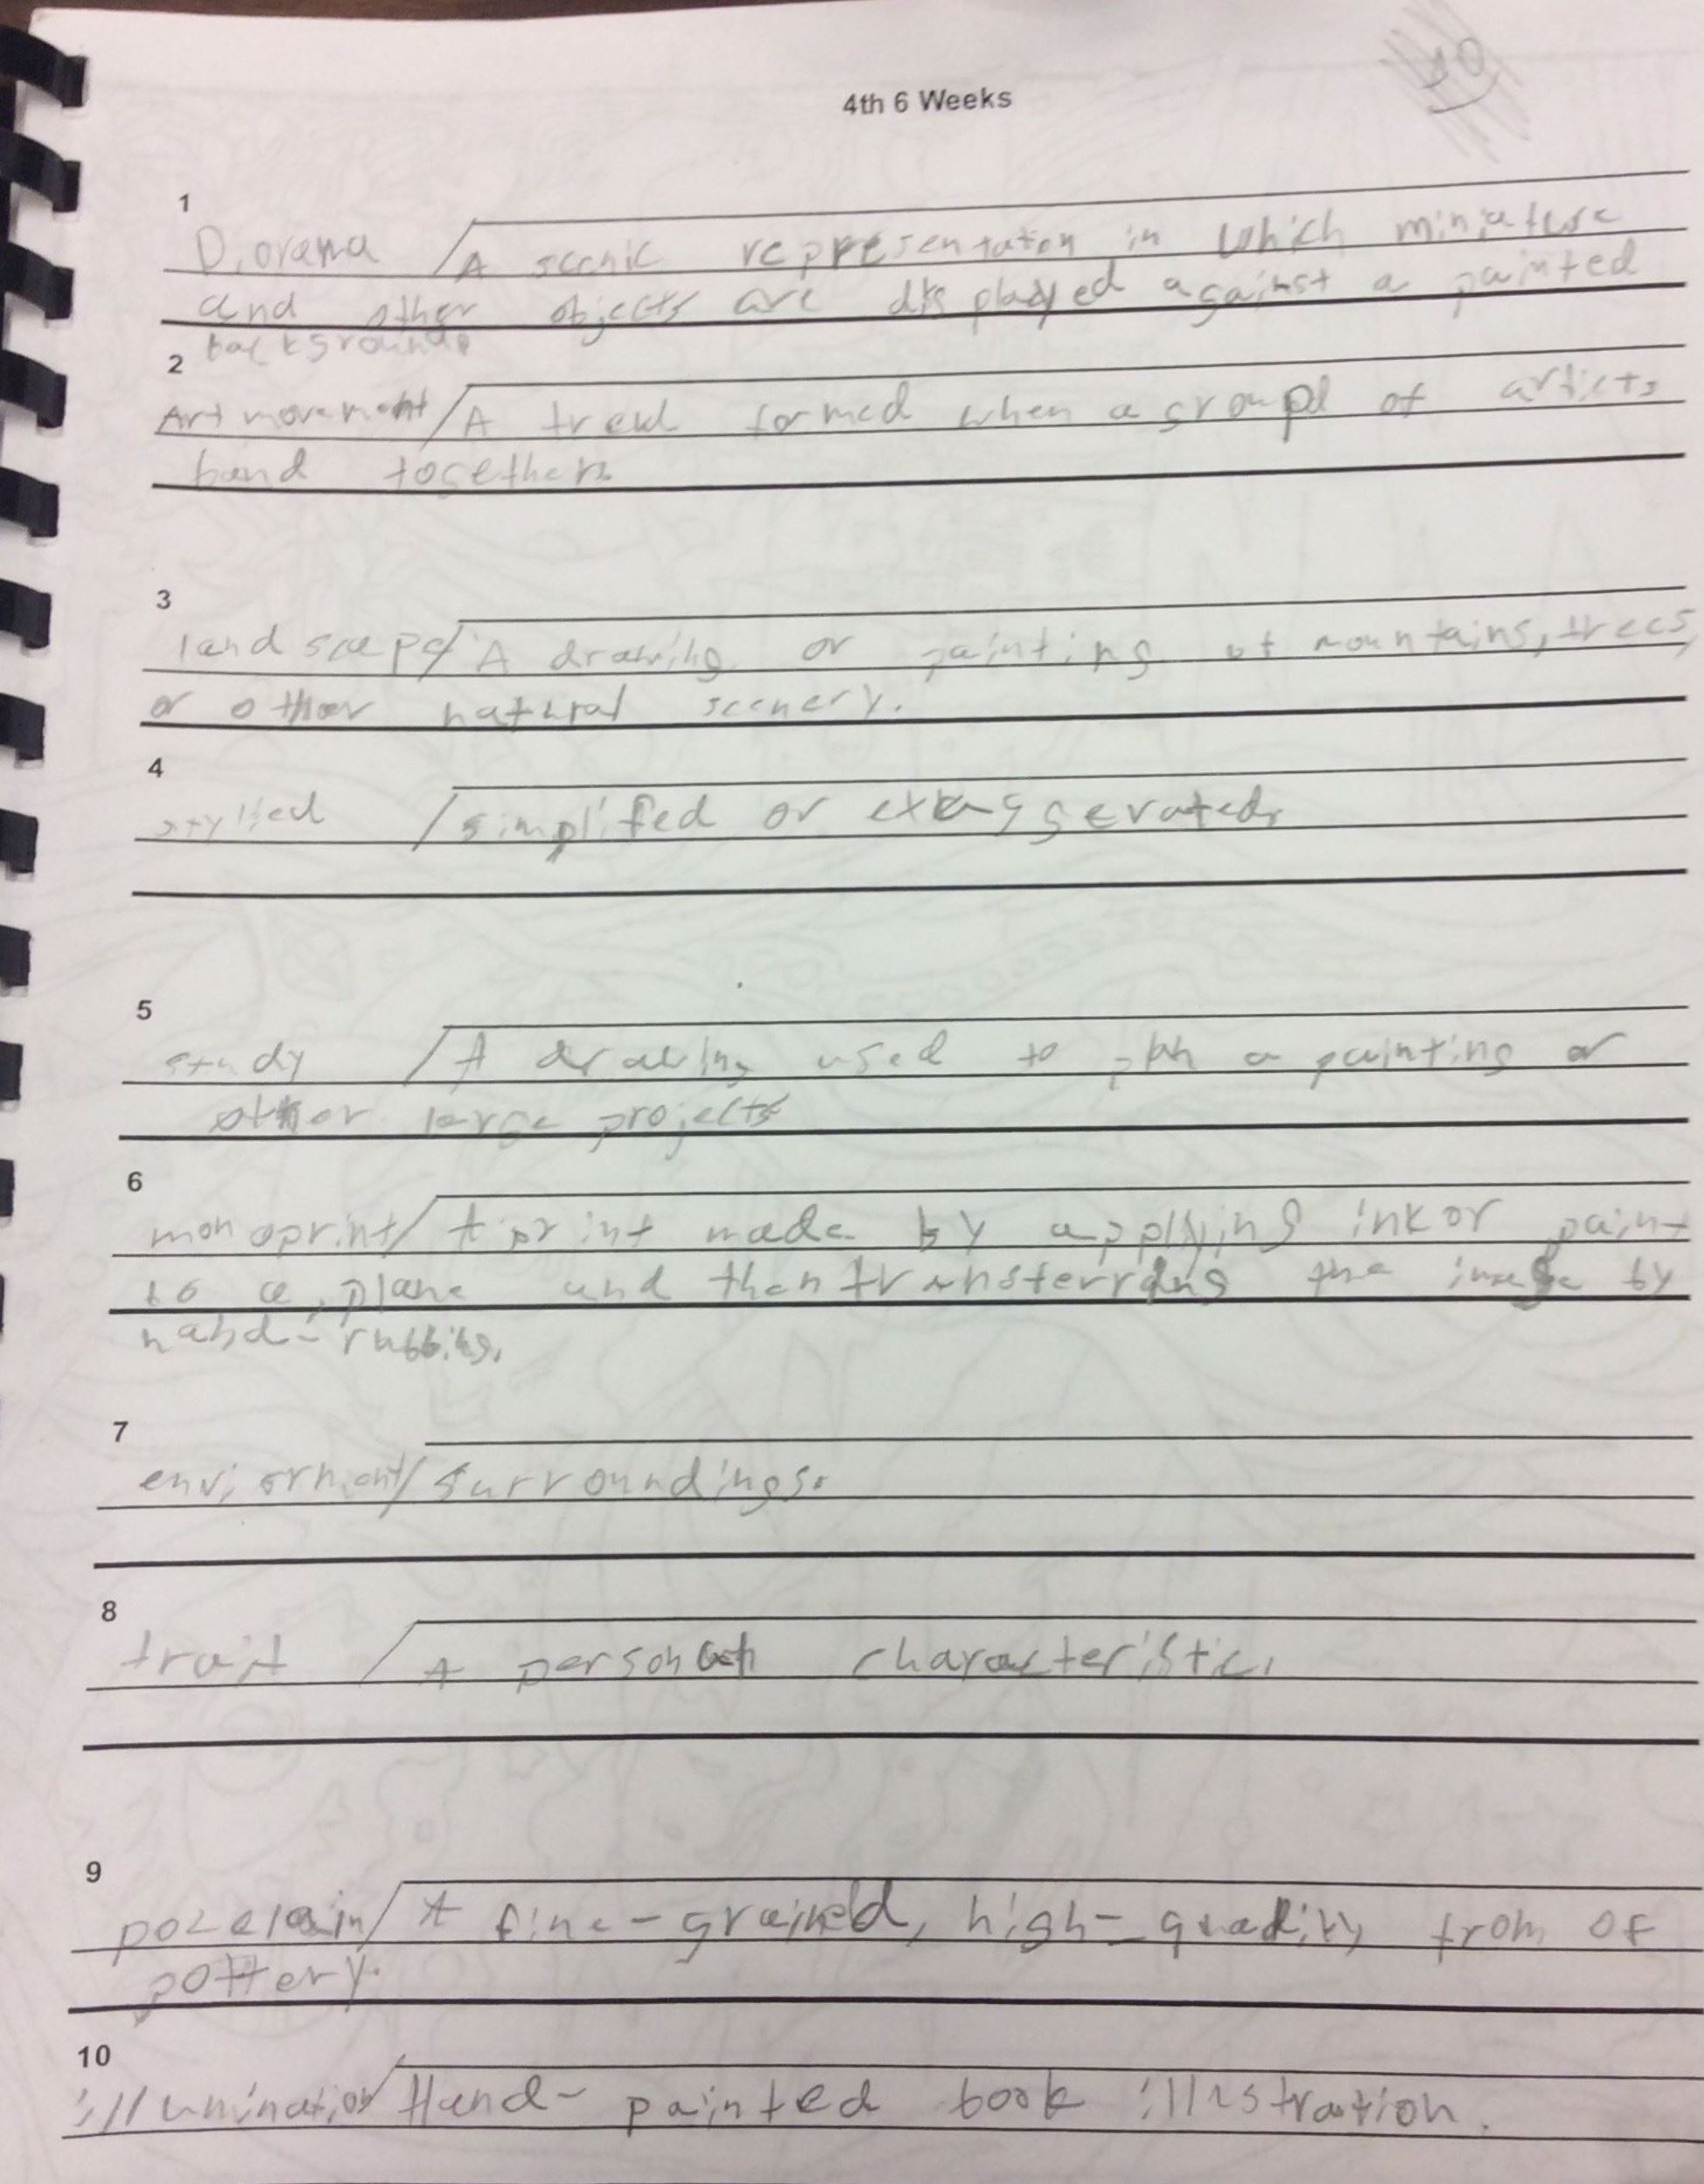 10
4th 6 Weeks
1
Diorama / A scenic representaton in which miniature
and other objects are displayed against a painted
backgrounds
2
Art movement / A trend formed when a group of articts
band togethers
3
landscape / A drawing or painting of mountains, trees,
or other natural scenery.
4
stylied / simplifed or exaggerated.
5
study / A drawing used to plan a painting or
other large projects
6
monoprint / A print made by applying ink or paint
to a plane and then transferring the image by
hand-rubbing.
7
enviornment / surroundings.
8
trait / A person characteristic.
9
pozelain / A fine-grained, high-quality from of
pottery.
10
illumination / Hand-painted book illustration.